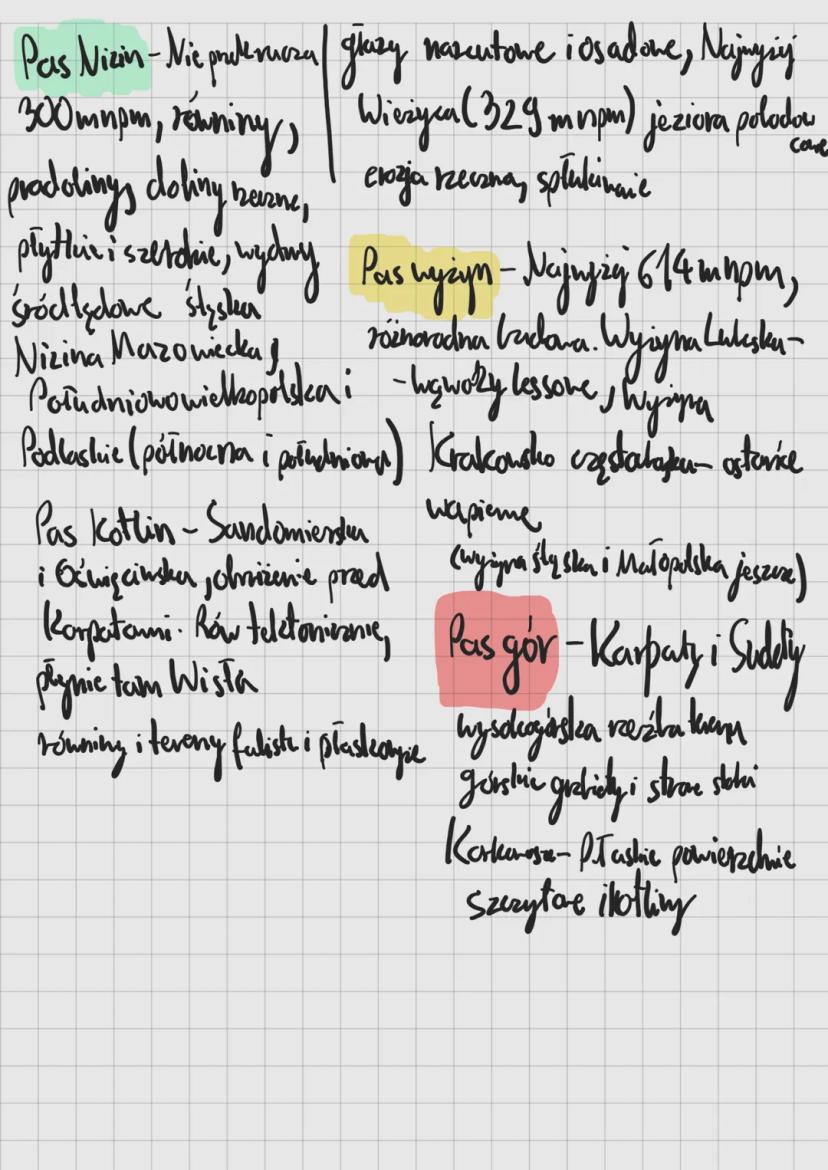 Pas Nizin - Nie przekracza
300 m npm, równiny,
pradoliny, doliny rzeczne,
płytkie i szerokie, wydmy
śródlądowe śląska
Nizina Mazowiecka,
Południowowielkopolska i
Podlaskie (północna i południowa)
Pas Kotlin - Sandomierska
i Oświęcimska, obniżenie przed
Karpatami. Rów tektoniczne,
płynie tam Wisła
równiny i tereny faliste i płaskowyże
głazy narzutowe i osadowe, Najwyżej
Wieżyca (329 m npm) jeziora polodow
cowe
erozja rzeczna, spłukiwanie
Pas wyżyn - Najwyżej 614 m npm,
różnorodna budowa. Wyżyna Lubelska -
- wąwozy lessowe, Wyżyna
Krakowsko częstochowska - ostańce
wapienne
(wyżyna śląska i Małopolska jeszcze)
Pas gór - Karpaty i Sudety
wysokogórska rzeźba terenu
górskie grzbiety i strome stoki
Karkonosze - Płaskie powierzchnie
szczytowe i kotliny